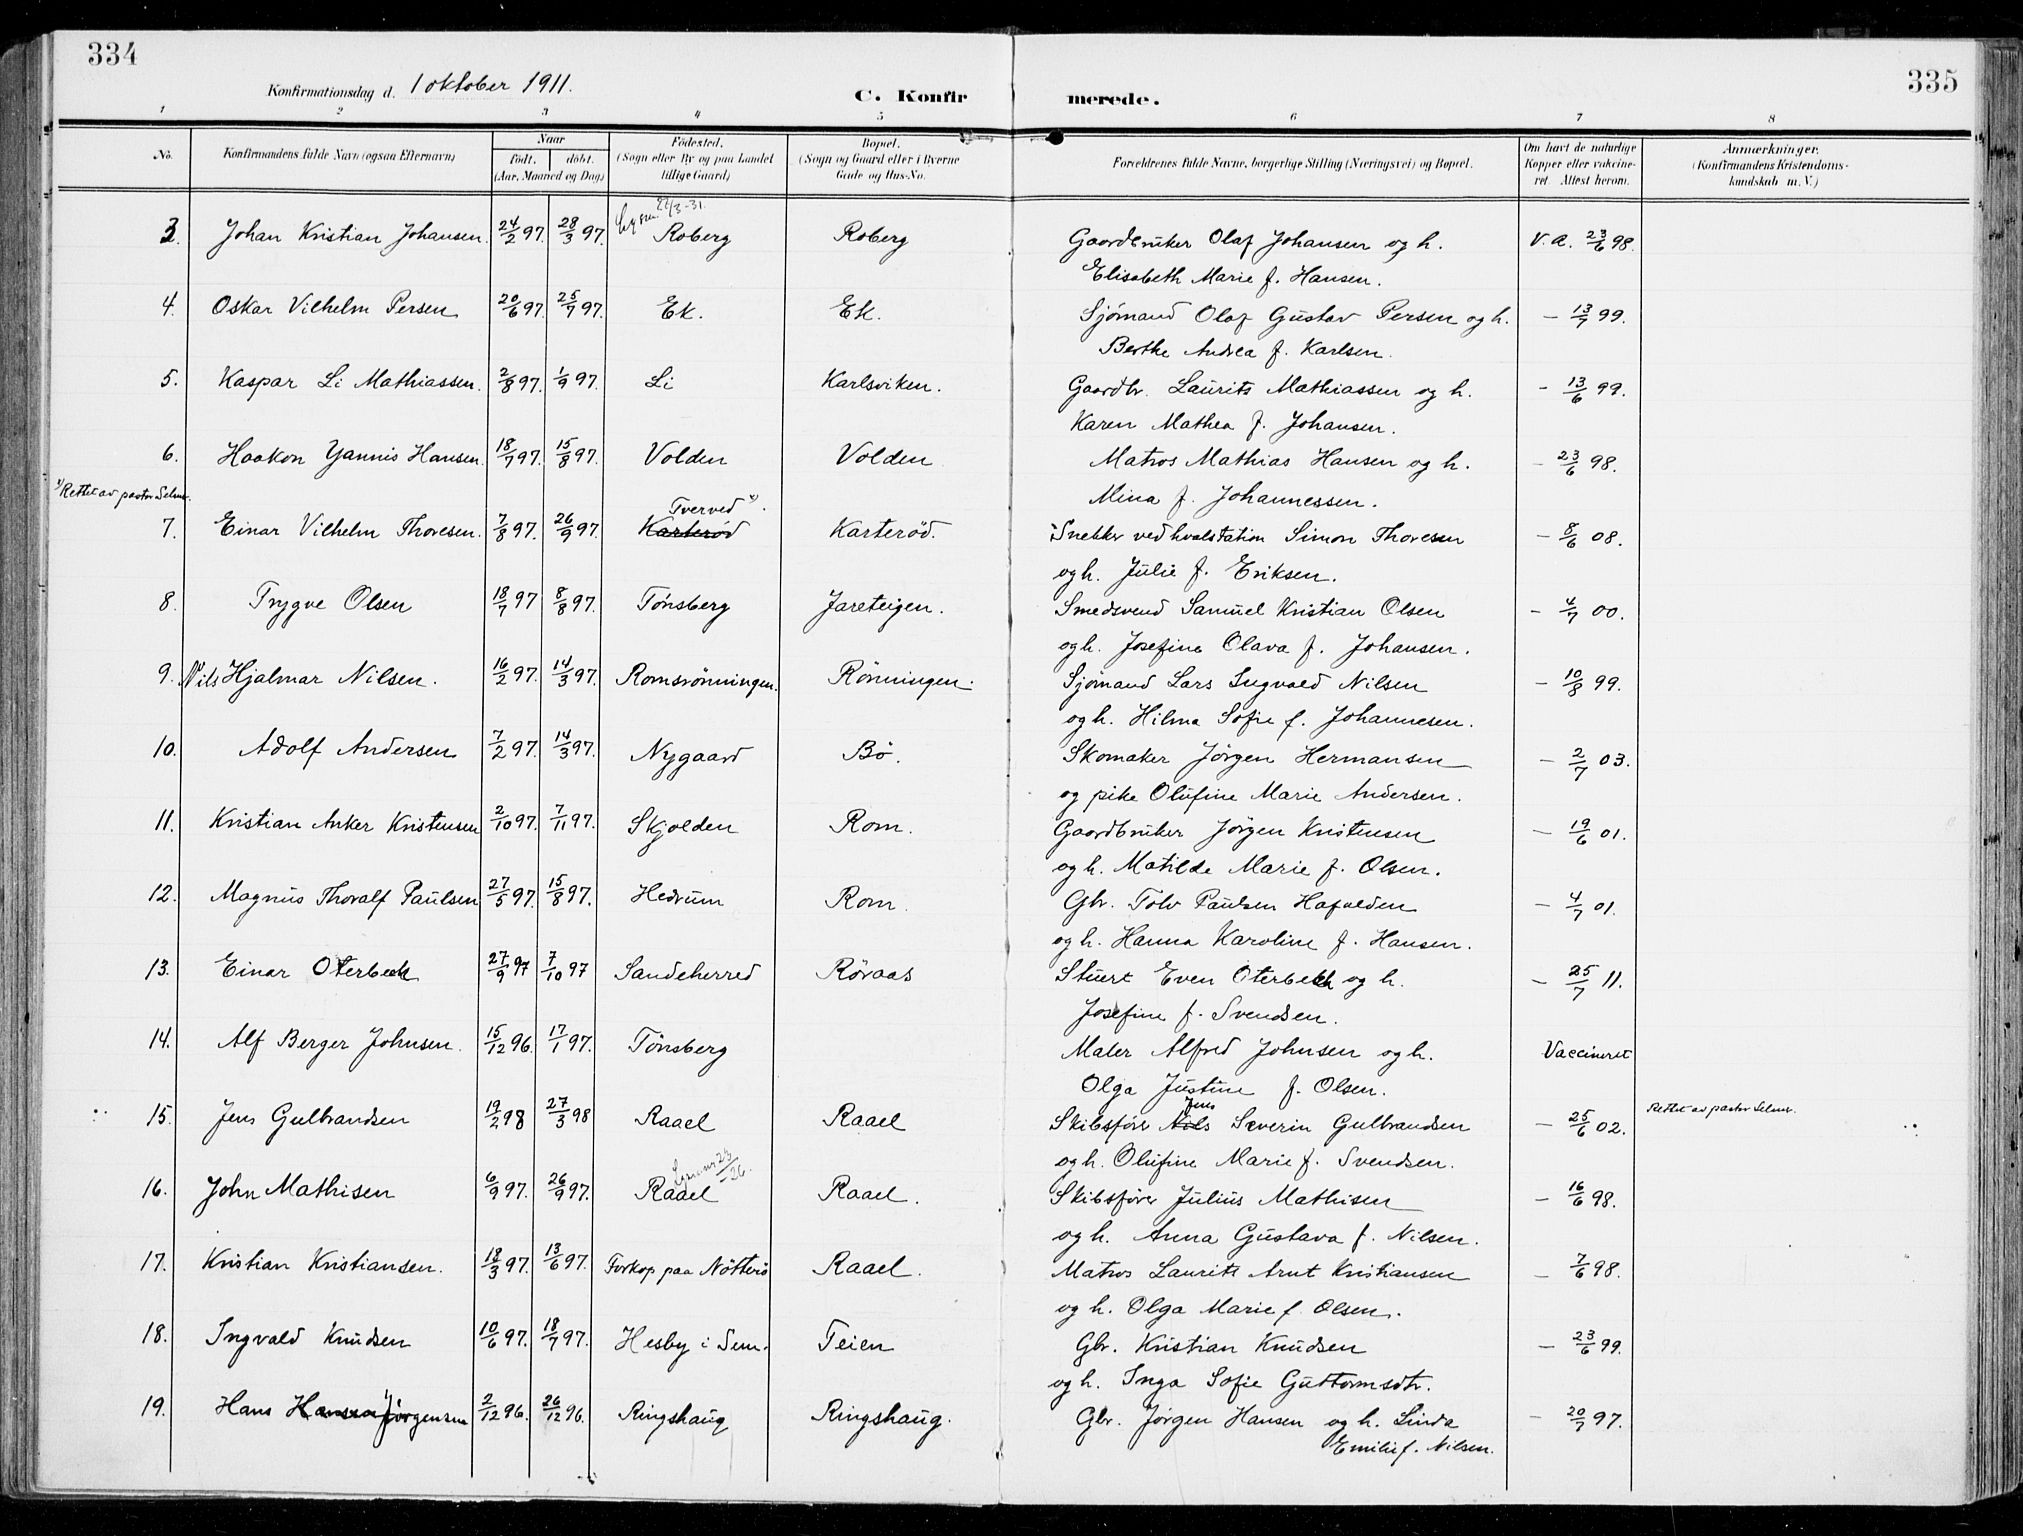 334
335
Konfirmationsdag d. 1 oktober 1911.
C. Konfirmerede.
1 2 3 4 5 6 7 8
No.
Konfirmandens fulde Navn (ogsaa Efternavn)
Naar
födt. döbt.
(Aar, Maaned og Dag)
Födested.
(Sogn eller By og paa Landet
tillige Gaard)
Bopæl.
(Sogn og Gaard eller i Byerne
Gade og Hus-No.
Forældrenes fulde Navne, borgerlige Stilling (Næringsvei) og Bopæl.
Om havt de naturlige
Kopper eller vakcine-
ret. Attest herom.
Anmærkninger.
(Konfirmandens Kristendoms-
kundskab m. V.)
22/3-31.
3. Johan Kristian Johansen. 24/2 97. 28/3 97. Roberg Roberg Gaardbruker Olaf Johansen og h. V.a. 23/6 98.
Elisabeth Marie f. Hansen.
4. Oskar Vilhelm Persen 20/6 97. 25/7 97. Ek. Ek. Sjömand Olaf Gustav Persen og h. – 13/7 99.
Berthe Andrea f. Karlsen.
5. Kaspar Li Mathiassen. 2/8 97. 1/9 97. Li Karlsviken. Gaardbr. Laurits Mathiassen og h. – 13/6 99.
Karen Mathea f. Johansen.
6. Haakon Yannis Hansen. 18/7 97. 15/8 97. Volden Volden Matros Mathias Hansen og h. – 23/6 98.
Mina f. Johannessen.
x) Rettet av pastor Selmer.
Tverved x).
7. Einar Vilhelm Thoresen. 7/8 97. 26/9 97. Karteröd Karteröd. Snekker ved hvalstation Simon Thoresen – 8/6 08.
og h. Julie f. Eriksen.
8. Trygve Olsen 18/7 97 8/8 97. Tönsberg Jareteigen. Smedsvend Samuel Kristian Olsen – 4/7 00.
og h. Josefine Olava f. Johansen.
9. Nils Hjalmar Nilsen. 16/2 97. 14/3 97. Romsrönningen. Rönningen. Sjömand Lars Ingvald Nilsen – 10/8 99.
og h. Hilma Sofie f. Johannesen.
10. Adolf Andersen 7/2 97. 14/3 97. Nygaard Bö. Skomaker Jörgen Hermansen – 2/7 03.
og pike Olufine Marie Andersen.
11. Kristian Anker Kristensen 2/10 97. 7/11 97. Skjolden Rom. Gaardbruker Jörgen Kristensen – 19/6 01.
og h. Matilde Marie f. Olsen.
12. Magnus Thoralf Paulsen 27/5 97. 15/8 97. Hedrum Rom. Gbr. Tolv Paulsen Hafalden – 4/7 01.
og h. Hanna Karoline f. Hansen.
13. Einar Oterbeck 27/9 97 7/10 97 Sandeherred Röraas Stuert Even Oterbech og h. – 25/7 11.
Josefine f. Svendsen.
14. Alf Berger Johnsen. 15/12 96. 17/1 97. Tönsberg Maler Alfred Johnsen og h. Vaccineret
Olga Justine f. Olsen.
Jens
Rettet av pastor Selmer.
15. Jens Gulbrandsen 19/2 98 27/3 98 Raael Raael Skibsförer Nils Severin Gulbrandsen – 25/6 02.
og h. Olufine Marie f. Svendsen.
16. John Mathisen 6/9 97. 26/9 97. Raael Raael. Skibsförer Julius Mathisen – 16/6 98.
og h. Anna Gustava f. Nilsen.
17. Kristian Kristiansen. 18/3 97. 13/6 97. Torkop paa Nötterö Raael. Matros Laurits Arnt Kristiansen – 7/6 98.
og h. Olga Marie f. Olsen.
18. Ingvald Knudsen 10/6 97. 18/7 97. Hesby i Sem. Teien Gbr. Kristian Knudsen – 23/6 99.
og h. Inga Sofie Guttormsdtr.
19. Hans Hansen Jörgensen 2/12 96. 26/12 96. Ringshaug Ringshaug. Gbr. Jörgen Hansen og h. Linda – 20/7 97.
Emilie f. Nilsen.